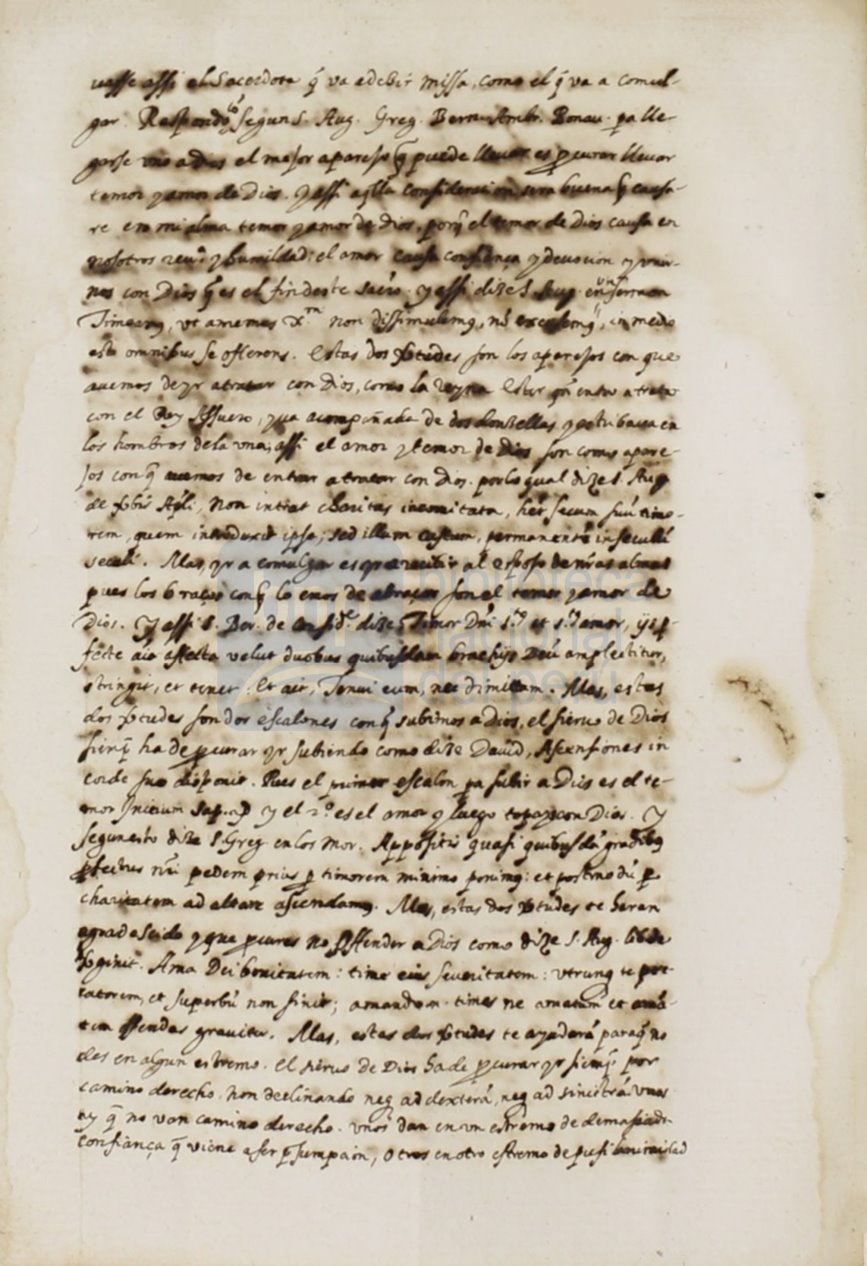 uasse assi el Sacerdote q̃ va a dezir missa, como el q̃ va a comul-
gar. Respondo, segun S. Aug. Greg. Bern. Ambr. Bonau. pa lle-
garse vno a Dios el mejor aparejo q̃ puede lleuar es ꝓcurar lleuar
temor y amor de Dios. Y assi aq̃lla consideracion sera buena q̃ causa-
re en mi alma temor y amor de Dios, porq̃ el temor de Dios causa en
nosotros y humildad: el amor causa confiança y deuocion y vnir-
nos con Dios q̃ es el fin deste sacrº. y assi dize S. Aug. en vn sermon
Timeamꝰ, vt amemus xᵐ non dissimulemꝰ, in medio
omnibus se offerens. Estas dos v̄tudes son los aparejos con que
auemos de yr a tratar con Dios, como la Reyna Ester qñ entro a tratar
con el Rey Assuero, yua acompañada de dos donzellas y estribaua en
los hombros de la vna; assi el amor y temor de Dios son como apare-
jos con q̃ auemos de entrar a tratar con Dios. por lo qual dize S. Aug.
de v̄bis Apl̃i, Non intrat charitas incomitata, secum suũ timo-
rem, quem introduxit ipsa; sed illum castum, permanentẽ in seculũ
seculi. Mas, yr a comulgar es yr a recibir al esposo de nr̃as almas
pues los braços con q̃ lo emos de abraçar son el temor y amor de
Dios. Y assi S. Ber. de dize, Timor Dñi et amor,
affectu velut duobus quibusdam brachijs Deũ amplectitur,
stringit, et tenet. Et ait, Tenui eum, nec dimittam. Mas, estas
dos v̄tudes son dos escalones con q̃ subimos a Dios, el sieruo de Dios
siemp̃ ha de ꝓcurar yr subiendo como dize Dauid, Ascensiones in
corde suo disposuit. Pues el primer escalon pa subir a Dios es el te-
mor Initium y el 2º es el amor y luego topays con Dios. Y
segun esto dize S. Greg. en los Mor. Appositis quasi quibusdã gradibꝰ
nr̃i pedem prius ꝑ timorem minimo ponimꝰ: et postmodũ ꝑ
charitatem ad altare ascendamꝰ. Mas, estas dos v̄tudes te haran
agradescido y que ꝓcures no offender a Dios como dize S. Aug. lib. de
v̄ginit. Ama Dei bonitatem: time eius seueritatem: vtrunq̃ te
et superbũ non sinit; amando n. times ne amatum et amã-
tem offendas grauiter. Mas, estas dos v̄tudes te ayudarã paraq̃ no
des en algun estremo. El sieruo de Dios ha de ꝓcurar yr siemp̃ por
camino derecho. non declinando neq̃ ad dexterã, neq̃ ad sinistrã. Vnos
ay q̃ no van camino derecho. vnos dan en vn estremo de demasiada
confiança q̃ viene a ser p̃sumpcion, otros en otro estremo de pusilanimidad
biblioteca
nacional
del perú